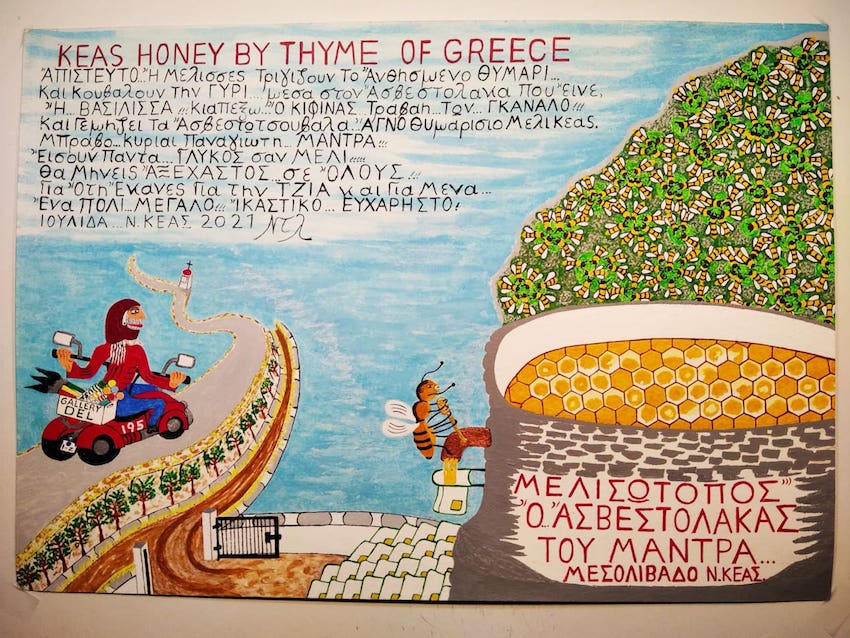 KEAS HONEY BY THYME OF GREECE
ἈΠΙΣΤΕΥΤΟ... Ἡ Μέλισσες Τριγιζουν Το Ἀνθησμενο ΘΥΜΑΡΙ...
Και Κουβαλουν την ΓΥΡΙ... μεσα στον Ἀσβεστολανα που εινε,
Ἡ... ΒΑΣΙΛΙΣΣΑ!!! Κιαπεξω... Ὁ ΚΙΦΙΝΑΣ... Τραβαη... Των... ΓΚΑΝΑΛΟ!!!
Και Γεμηζει τα Ἀσβεστωτσουβαλα. ἉΓΝΟ Θυμαρισιο Μελι Κεας.
Μπραβο... Κυριαι Παναγιωτη... ΜΑΝΤΡΑ!!!
Εἰσουν Παντα... ΓΛΥΚΟΣ σαν ΜΕΛΙ!!!!!
Θα Μηνεις ἈΞΕΧΑΣΤΟΣ... σε ὉΛΟΥΣ!!!
Για Ὁτη Ἐκανες Για την ΤΖΙΑ και Για Μενα...
Ἑνα ΠΟΛΙ... ΜΕΓΑΛΟ!!! ἸΚΑΣΤΙΚΟ... ΕΥΧΑΡΗΣΤΟ!
ΙΟΥΛΙΔΑ... Ν. ΚΕΑΣ 2021
GALLERY
DEL
195
ΜΕΛΙΣΩΤΟΠΟΣ"
Ὁ... ἈΣΒΕΣΤΟΛΑΚΑΣ
ΤΟΥ ΜΑΝΤΡΑ...
ΜΕΣΟΛΙΒΑΔΟ Ν. ΚΕΑΣ.